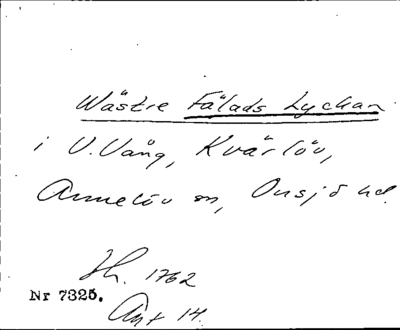 Wästre Fälads Lyckan
i V. Vång, Kvärlöv,
Annelöv sn, Onsjö hd.
Ih. 1762
Nr 7325.
Ant 14.